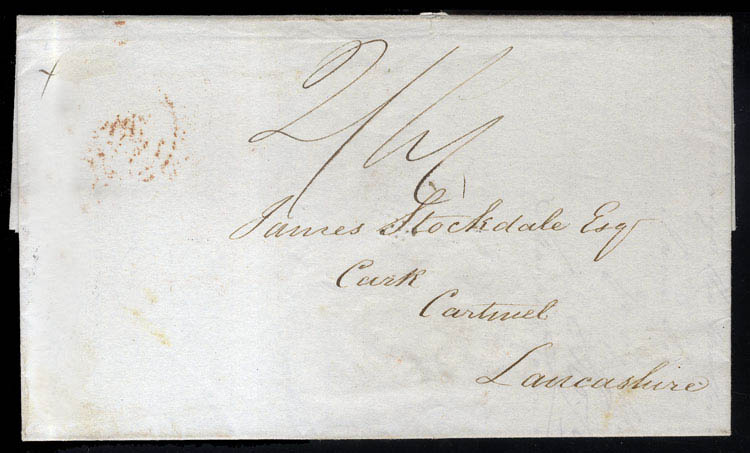 James Stockdale Esqr
Cark
Cartmel
Lancashire